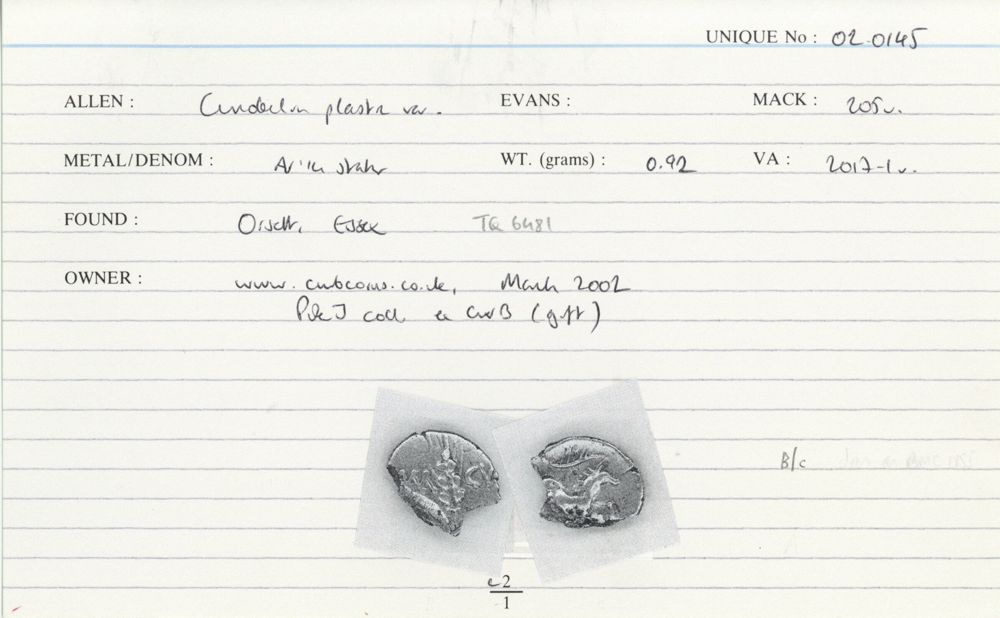 UNIQUE No : 02.0145
ALLEN : Cunobelin plastic var. EVANS : MACK : 205v.
METAL/DENOM : WT. (grams) : 0.92 VA : 2017-1v.
FOUND : Orsett, Essex TQ 6481
OWNER : www.cnbcoins.co.uk, March 2002
P de J coll ex CNB (gift)
B/c
c2
1